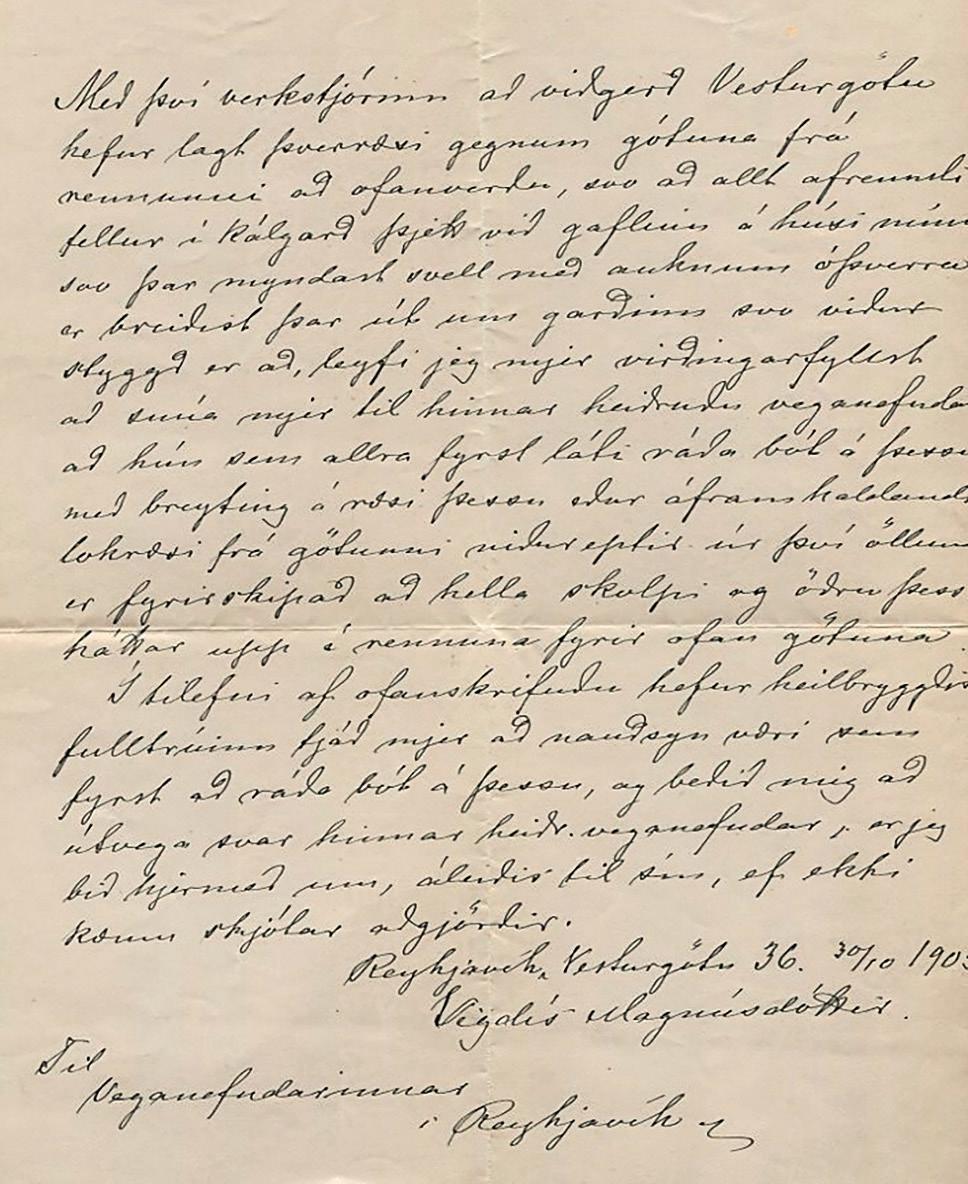 Með því verkstjórinn að viðgerð Vesturgötu
hefur lagt þverræsi gegnum götuna frá
rennunni að ofanverðu, svo að allt afrennsli
fellur í kálgarð þjett við gaflinn á húsi mínu
svo þar myndast svell með auknum óþverra
er breiðist þar út um garðinn svo viður
styggð er að, leyfi jeg mjer virðingarfyllst
að snúa mjer til hinnar heiðruðu veganefndar
að hún sem allra fyrst láti ráða bót á þessu
með breyting á ræsi þessu eður áframhaldandi
lokræsi frá götunni niðureptir úr því öllum
er fyrirskipað að hella skolpi og öðru þess
háttar upp í rennuna fyrir ofan götuna
Í tilefni af ofanskrifuðu hefur heilbryggðis
fulltrúinn tjáð mjer að nauðsyn væri sem
fyrst að ráða bót á þessu, og beðið mig að
útvega svar hinnar heiðr. veganefndar, er jeg
bið hjermeð um, áleiðis til sín, ef ekki
kæmu skjótar aðgjörðir.
Reykjavík, Vesturgötu 36. 30/10 1903
Vigdís Magnúsdóttir.
Til
Veganefndarinnar
í Reykjavík